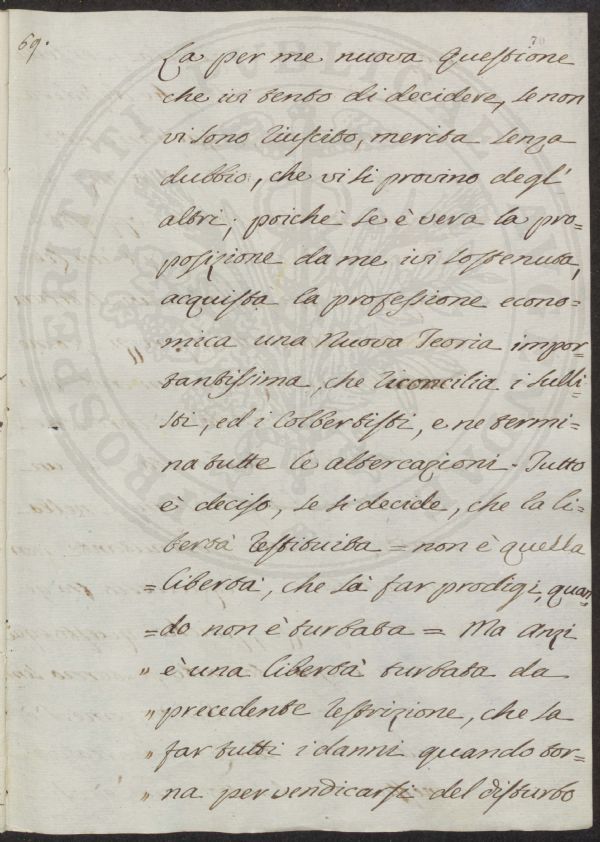 69.
70
La per me nuova questione
che ivi tento di decidere, se non
vi sono riuscito, merita senza
dubbio, che vi si provino degl'
altri; poichè se è vera la pro=
posizione da me ivi sostenuta,
acquista la professione econo=
mica una Nuova Teoria impor=
tantissima, che riconcilia i sulli
sti, ed i Colbertisti, e ne termi=
na tutte le altercazioni. Tutto
è deciso, se si decide, che la li=
bertà restituita = non è quella
= libertà, che sà far prodigi, quan=
= do non è turbata = Ma anzi
" è una libertà turbata da
" precedente restrizione, che sa
" far tutti i danni quando tor=
" na per vendicarsi del disturbo
PROSPERITATI PUBLICAE AUGENDAE